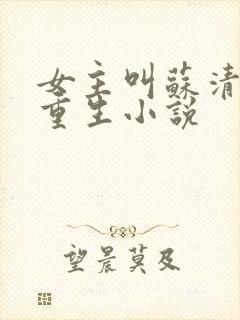 女主叫蘇清
重生小說
望晨莫及